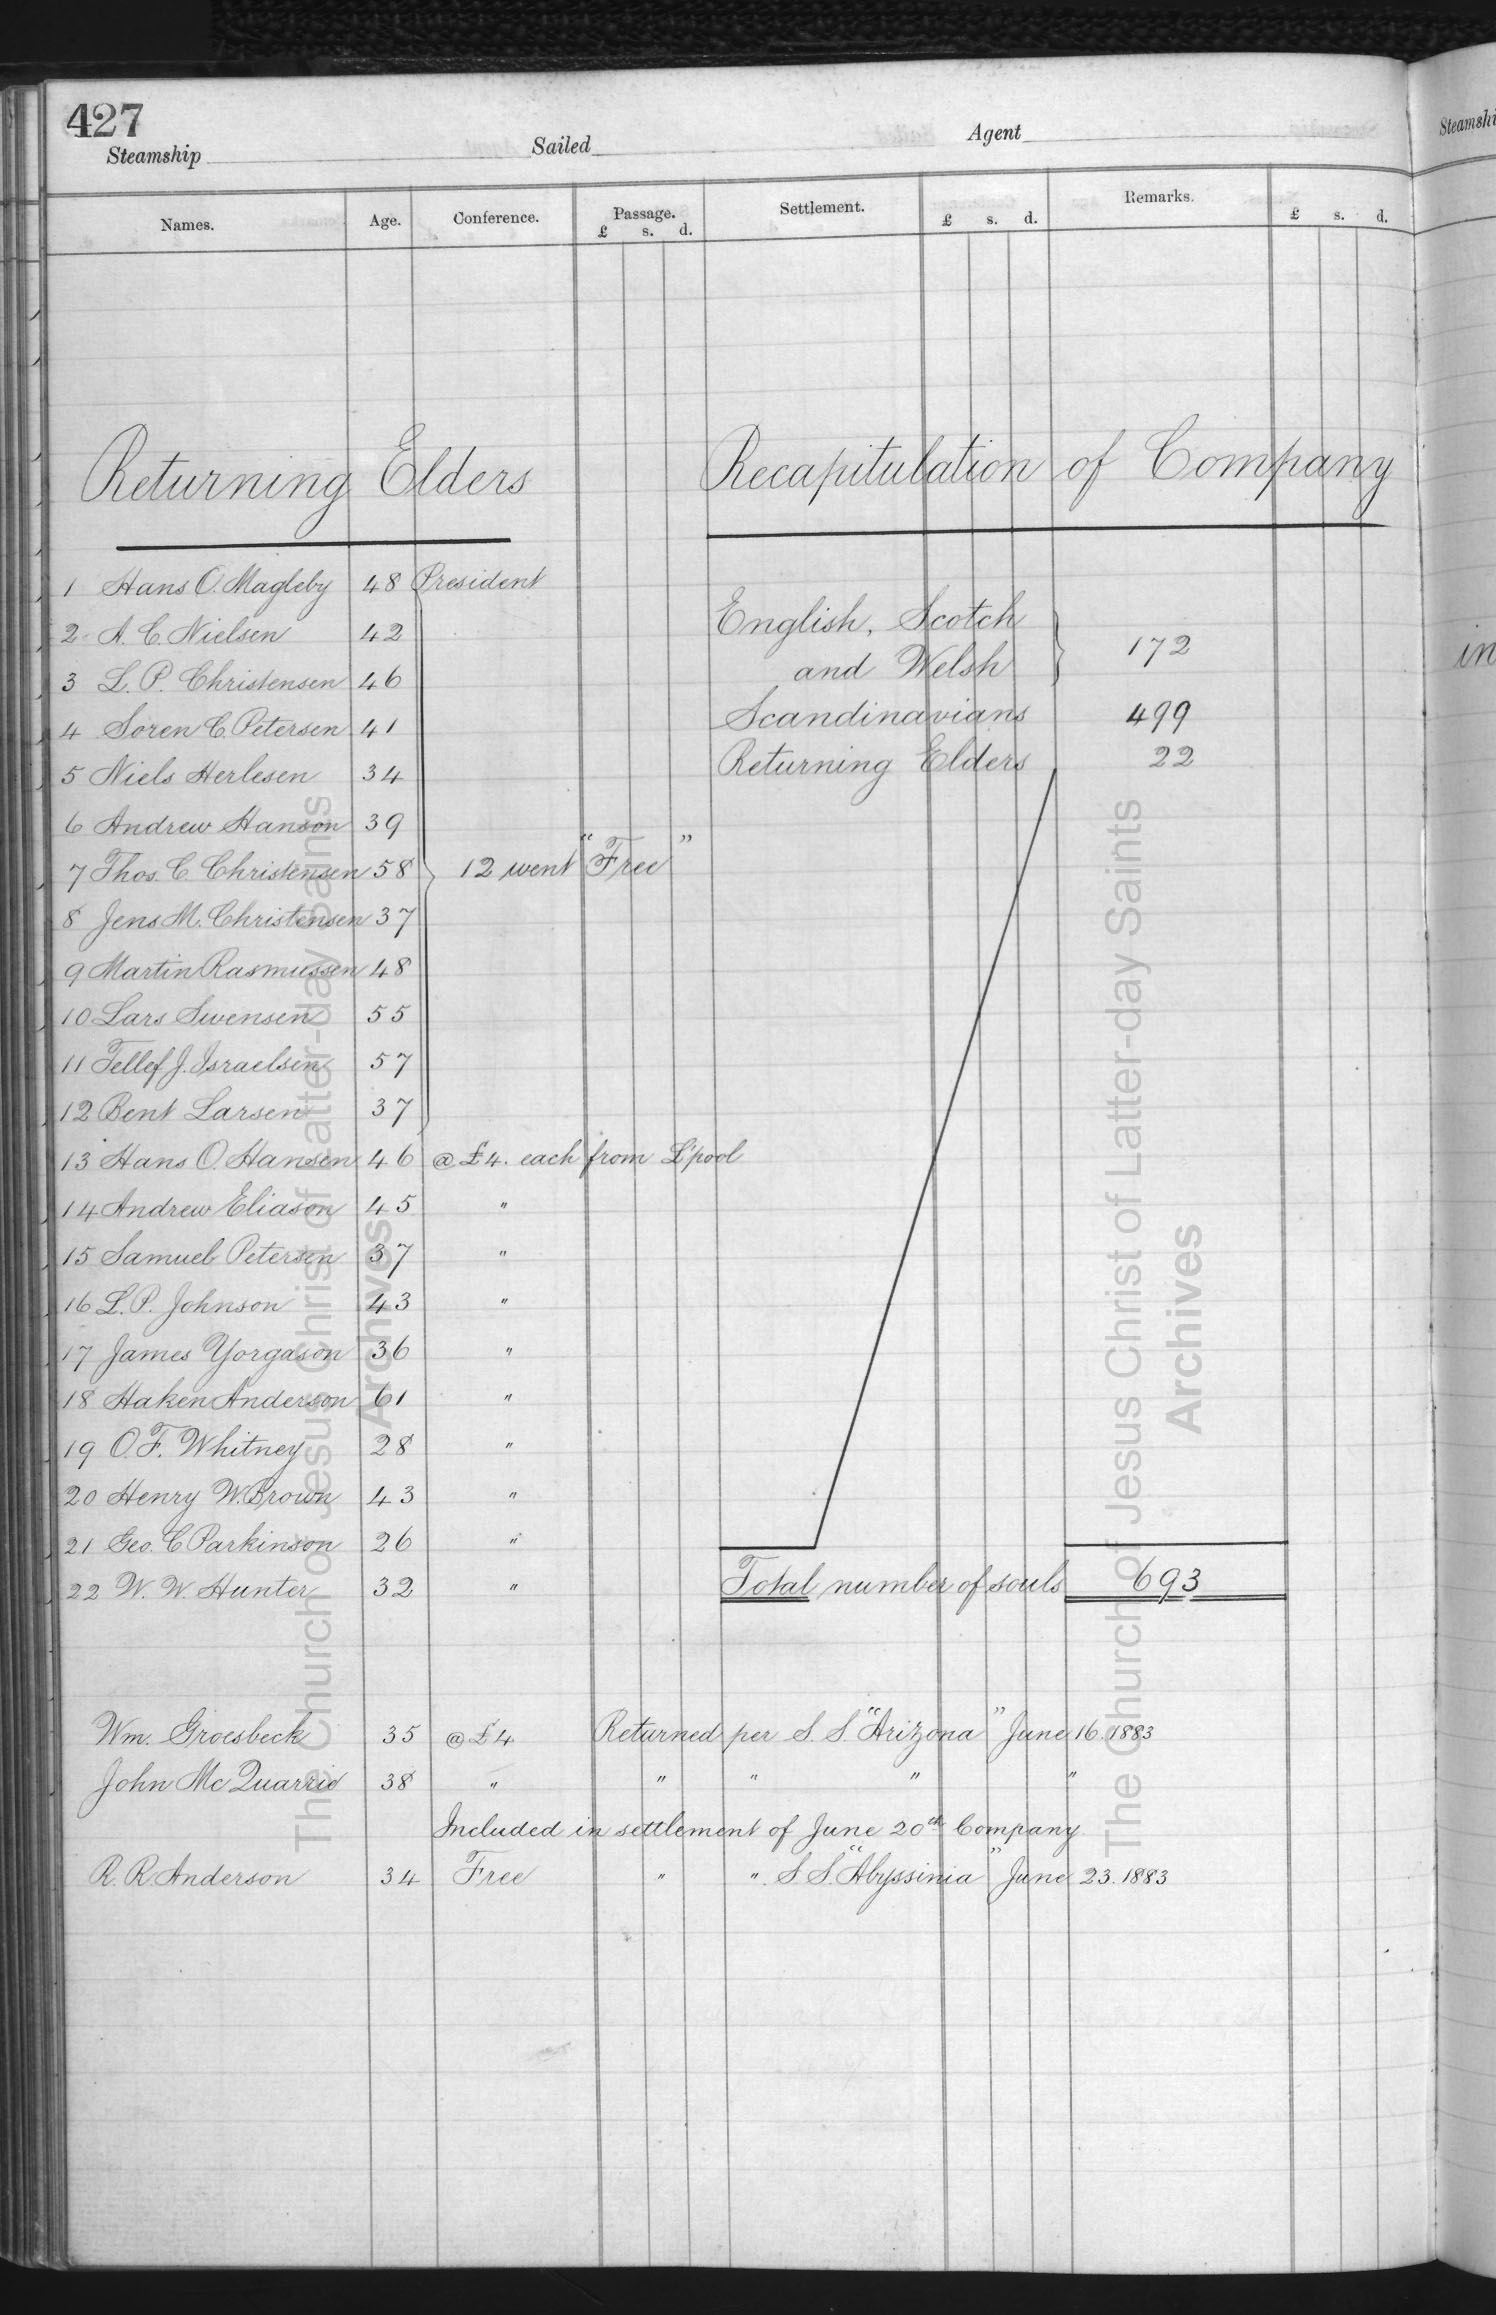 427
Steamship Sailed Agent
Names. Age. Conference. Passage. £ s. d. Settlement. £ s. d. Remarks. £ s. d.
Returning Elders
1 Hans O. Magleby 48 President
2 A. C. Nielsen 42
3 L. P. Christensen 46
4 Soren C. Petersen 41
5 Niels Herlesen 34
6 Andrew Hanson 39
7 Thos. C. Christensen 58 12 went "Free"
8 Jens M. Christensen 37
9 Martin Rasmussen 48
10 Lars Swensen 55
11 Tellef J. Israelsen 57
12 Bent Larsen 37
13 Hans O. Hansen 46 @ £4. each from L'pool
14 Andrew Eliason 45 "
15 Samuel Petersen 37 "
16 L. P. Johnson 43 "
17 James Yorgason 36 "
18 Haken Anderson 61 "
19 O. F. Whitney 28 "
20 Henry W. Brown 43 "
21 Geo. C Parkinson 26 "
22 W. W. Hunter 32 "
Recapitulation of Company
English, Scotch
and Welsh } 172
Scandinavians 499
Returning Elders 22
Total number of souls 693
Wm. Groesbeck 35 @ £4 Returned per S. S. "Arizona" June 16. 1883
John McQuarrie 38 " " " " "
Included in settlement of June 20th Company
R. R Anderson 34 Free " " S. S. "Abyssinia" June 23. 1883
Steamshi
in
The Church of Jesus Christ of Latter-day Saints
Archives
The Church of Jesus Christ of Latter-day Saints
Archives